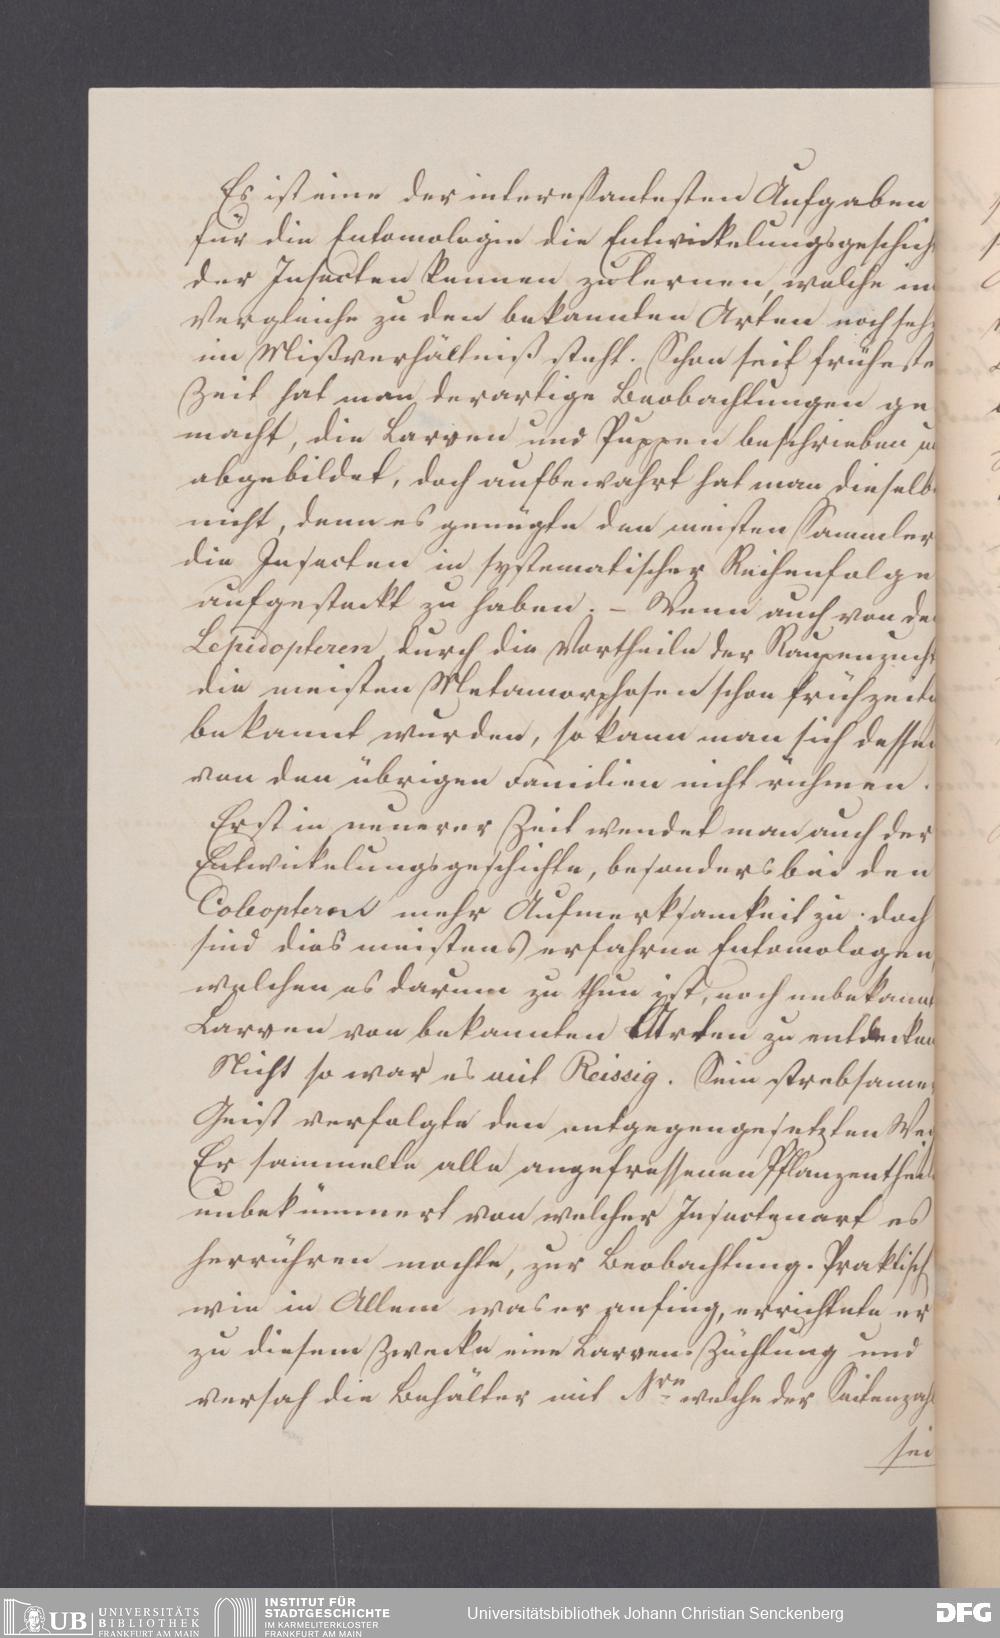 Es ist eine der interessantesten Aufgaben
für die Entomologie die Entwickelungsgeschich
der Insecten kennen zu lernen, welche im
Vergleiche zu den bekannten Arten noch seh
im Mißverhältniß steht. Schon seit früheste
Zeit hat man derartige Beobachtungen ge
macht, die Larven und Puppen beschrieben u
abgebildet, doch aufbewahrt hat man dieselb
nicht, denn es genügte den meisten Sammler
die Insecten in systematischer Reihenfolge
aufgesteckt zu haben. – Wenn auch von de
Lepidopteren, durch die Vortheile der Raupenzuch
die meisten Metamorphosen schon frühzeiti
bekannt wurden, so kann man sich dessen
von den übrigen Familien nicht rühmen.
Erst in neuerer Zeit wendet man auch der
Entwickelungsgeschichte, besonders bei den
Coleoptern mehr Aufmerksamkeit zu. doch
sind dies meistens erfahrne Entomologen,
welchen es darum zu thun ist, noch unbekann
Larven von bekannten Arten zu entdecken
Nicht so war es mit Reissig. Sein strebsame
Geist verfolgte den entgegengesetzten We
Er sammelte alle angefressenen Pflanzentheil
unbekümmert von welcher Insectenart es
herrühren mochte, zur Beobachtung. Praktisch
wie in Allem was er anfing, errichtete er
zu diesem Zwecke eine Larven-Züchtung und
versah die Behälter mit Nrn welche der Seitenzah
sei
UB UNIVERSITÄTS
BIBLIOTHEK
FRANKFURT AM MAIN
INSTITUT FÜR
STADTGESCHICHTE
IM KARMELITERKLOSTER
FRANKFURT AM MAIN
Universitätsbibliothek Johann Christian Senckenberg
DFG